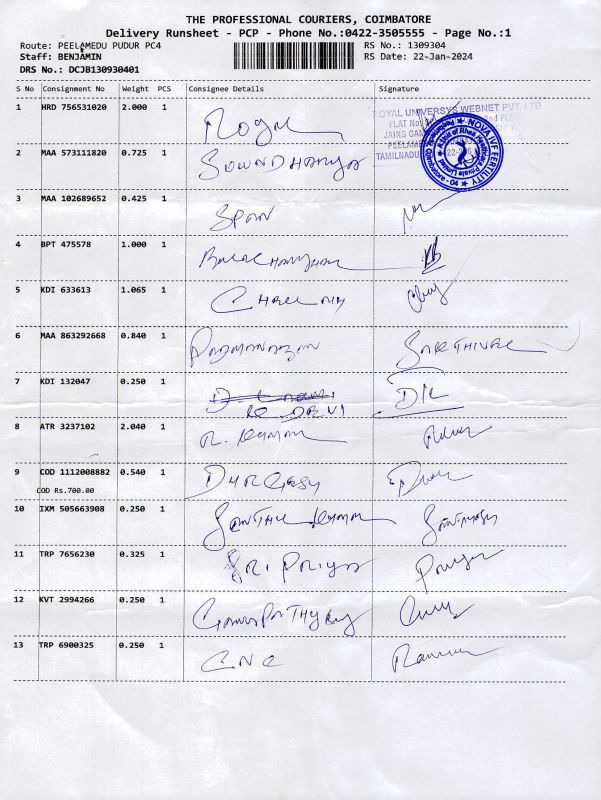 THE PROFESSIONAL COURIERS, COIMBATORE
Delivery Runsheet - PCP - Phone No.:0422-3505555 - Page No.:1
Route: PEELAMEDU PUDUR PC4
RS No.: 1309304
Staff: BENJAMIN
RS Date: 22-Jan-2024
DRS No.: DCJB130930401
S No Consignment No Weight PCS Consignee Details Signature
1 HRD 756531020 2.000 1
ROYAL UNIVERSYS WEBNET PVT. LTD
FLAT No
JAINS
PEELAM
TAMILNADU
NOVA IVF FERTILITY
2 MAA 573111820 0.725 1 SOWNDHARYA
3 MAA 102689652 0.425 1
4 BPT 475578 1.000 1
5 KDI 633613 1.065 1
6 MAA 863292668 0.840 1 SAKTHIVEL
7 KDI 132047 0.250 1 DEVI
8 ATR 3237102 2.040 1 R. KUMAR
9 COD 1112008882 0.540 1
COD Rs.700.00
10 IXM 505663908 0.250 1
11 TRP 7656230 0.325 1 SRI PRIYA Priya
12 KVT 2994266 0.250 1
13 TRP 6900325 0.250 1 CNC